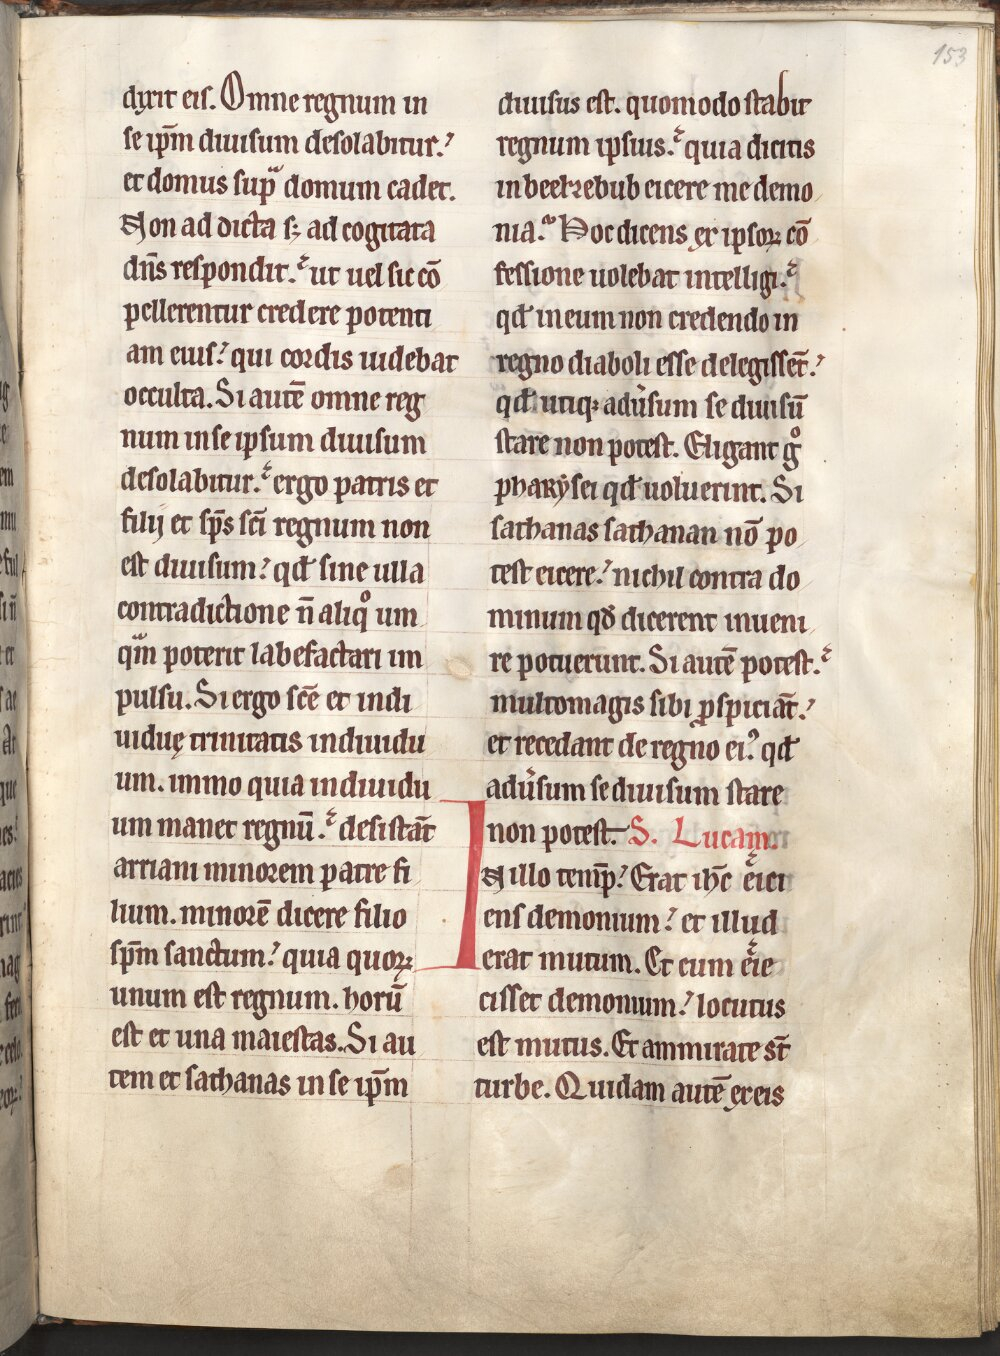 153
dixit eis. Omne regnum in
se ip̄m diuisum desolabitur.
et domus supͣ domum cadet.
Non ad dicta sꝫ ad cogitata
dn̄s respondit. ut uel sic cō
pellerentur credere potenti
am eius. qui cordis uidebat
occulta. Si autē omne reg
num in se ipsum diuisum
desolabitur. ergo patris et
filij et sp̄s sc̄i regnum non
est diuisum. qđ sine ulla
contradictione n̄ aliqͦ um
qͣm poterit labefactari im
pulsu. Si ergo sc̄e et indi
uiduę trinitatis indiuidu
um. immo quia indiuidu
um manet regnū. desistāt
arriani minorem patre fi
lium. minorē dicere filio
sp̄m sanctum. quia quoꝝ
unum est regnum. horū
est et una maiestas. Si au
tem et sathanas in se ip̄m
diuisus est. quomodo stabit
regnum ipsius. quia dicitis
in beelzebub eicere me demo
nia. Hoc dicens ex ipsoꝝ cō
fessione uolebat intelligi.
qđ in eum non credendo in
regno diaboli esse delegissēt.
qđ utiqꝫ adu̓sum se diuisū
stare non potest. Eligant gͦ
pharẏsei qđ uoluerint. Si
sathanas sathanan nō po
test eicere. nichil contra do
minum qđ dicerent inueni
re potuerunt. Si autē potest.
multomagis sibi ꝓspiciāt.
et recedant de regno eiꝰ. qđ
adu̓sum se diuisum stare
non potest. S. Lucam.
In illo temp̄. Erat ih̄c eici
ens demonium. et illud
erat mutum. Et cum eie
cisset demonium. locutus
est mutus. Et ammirate st̄
turbe. Quidam autē ex eis